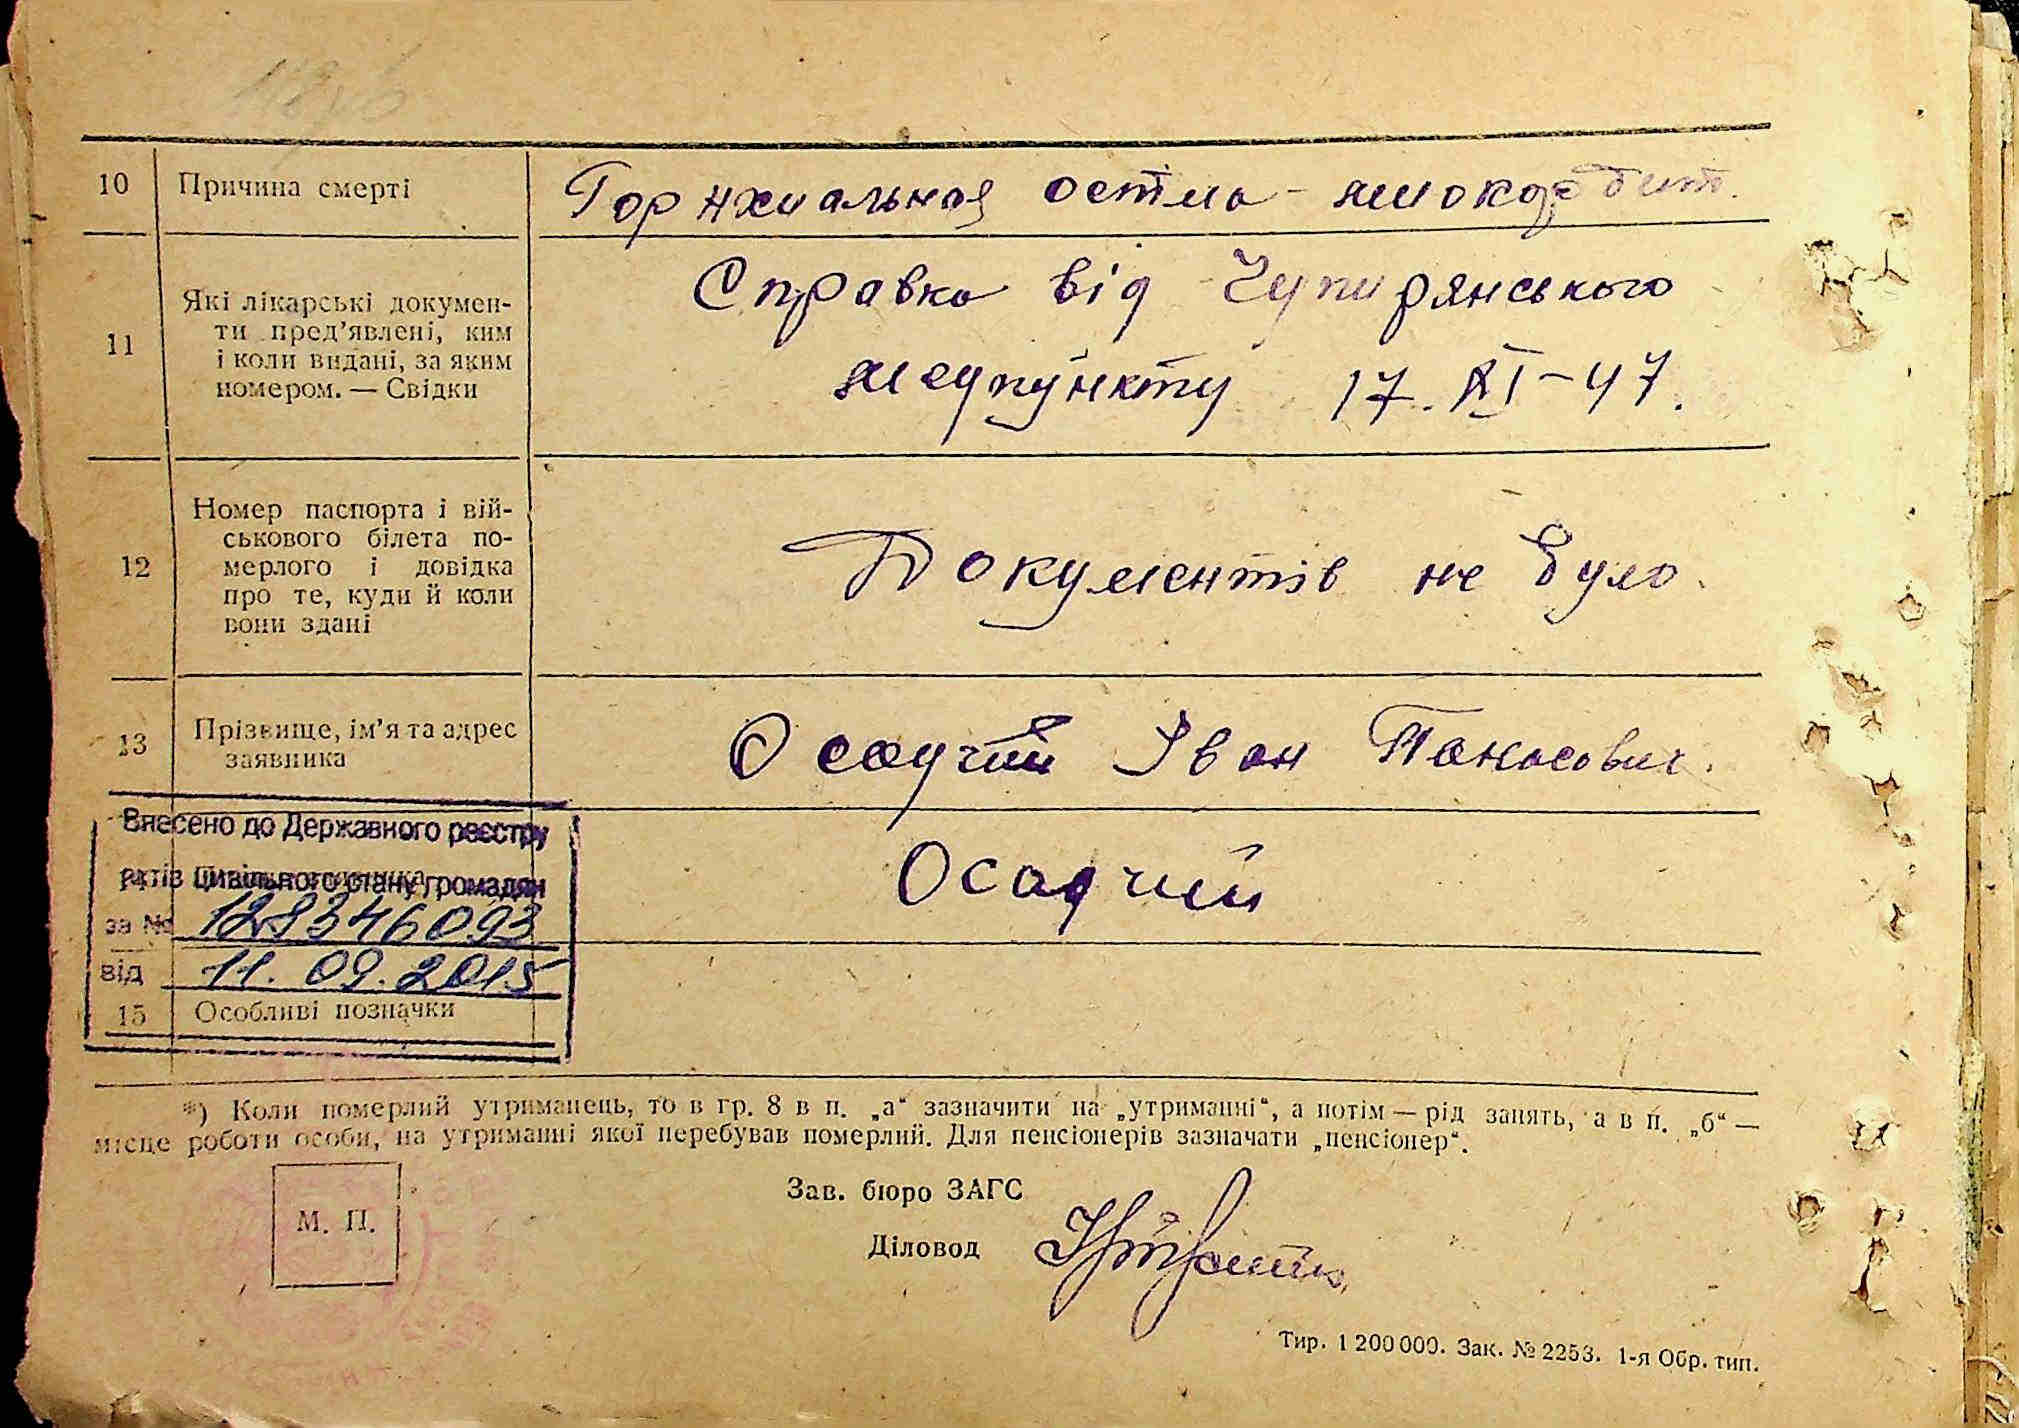 10 Причина смерті Горнхиальная остма - миокордбит.
11 Які лікарські докумен-
ти пред'явлені, ким
і коли видані, за яким
номером. — Свідки
Справка від Чупирянського
медпункту 17. XI-47.
12 Номер паспорта і вій-
ськового білета по-
мерлого і довідка
про те, куди й коли
вони здані
Документів не було.
13 Прізвище, ім'я та адрес
заявника
Осадчий Іван Панасович.
Внесено до Державного реєстру
актів цивільного стану громадян
за № 128346093
від 11.09.2015
Осадчий
15 Особливі позначки
*) Коли померлий утриманець, то в гр. 8 в п. „а“ зазначити на „утриманні“, а потім — рід занять, а в п. „б“ —
місце роботи особи, на утриманні якої перебував померлий. Для пенсіонерів зазначати „пенсіонер“.
М. П.
Зав. бюро ЗАГС
Діловод
Тир. 1 200 000. Зак. № 2253. 1-я Обр. тип.